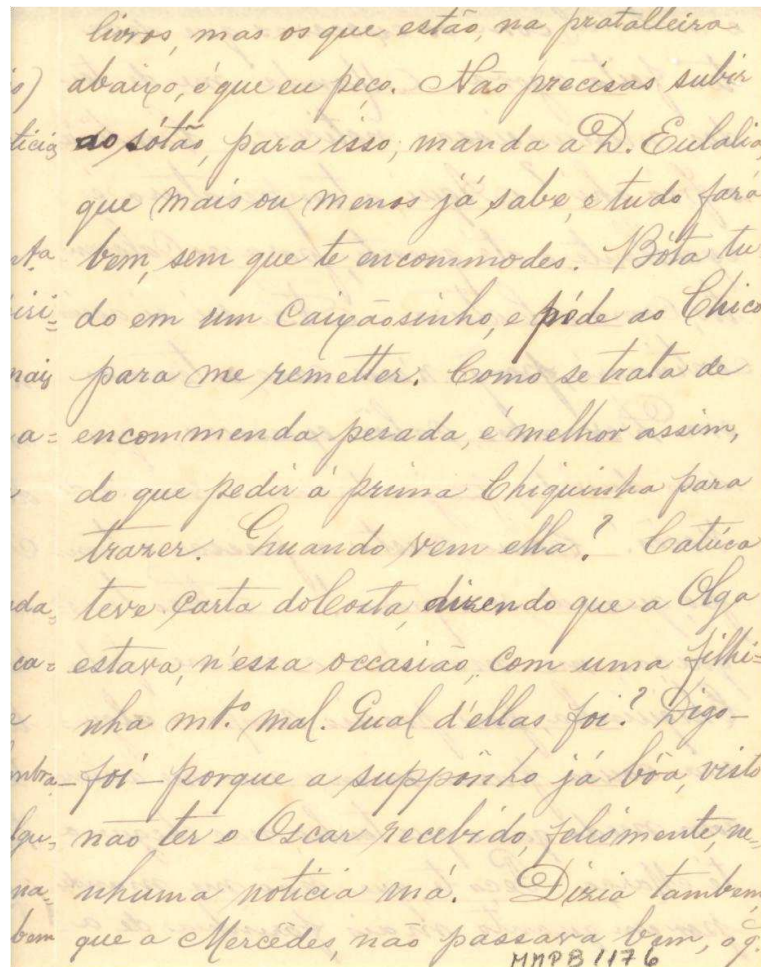 livros, mas os que estão, na pratalleira
abaixo, é que eu peço. Não precisas subir
ao sótão, para isso, manda a D. Eulalia,
que mais ou menos já sabe, e tudo fará
bem, sem que te encommodes. Bóta tu-
do em um caixãosinho, e péde ao Chico
para me remetter. Como se trata de
encommenda pesada, é melhor assim,
do que pedir á prima Chiquinha para
trazer. Quando vem ella? Catúca
teve carta do Costa, dizendo que a Olga
estava, n'essa occasião, com uma filhi=
nha mt.º mal. Qual d'ellas foi? Digo-
-foi- porque a supponho já bôa, visto
não ter o Oscar recebido, felismente, ne-
nhuma noticia má. Dizia tambem,
que a Mercêdes, não passava bem, o q.
MMPB 1176